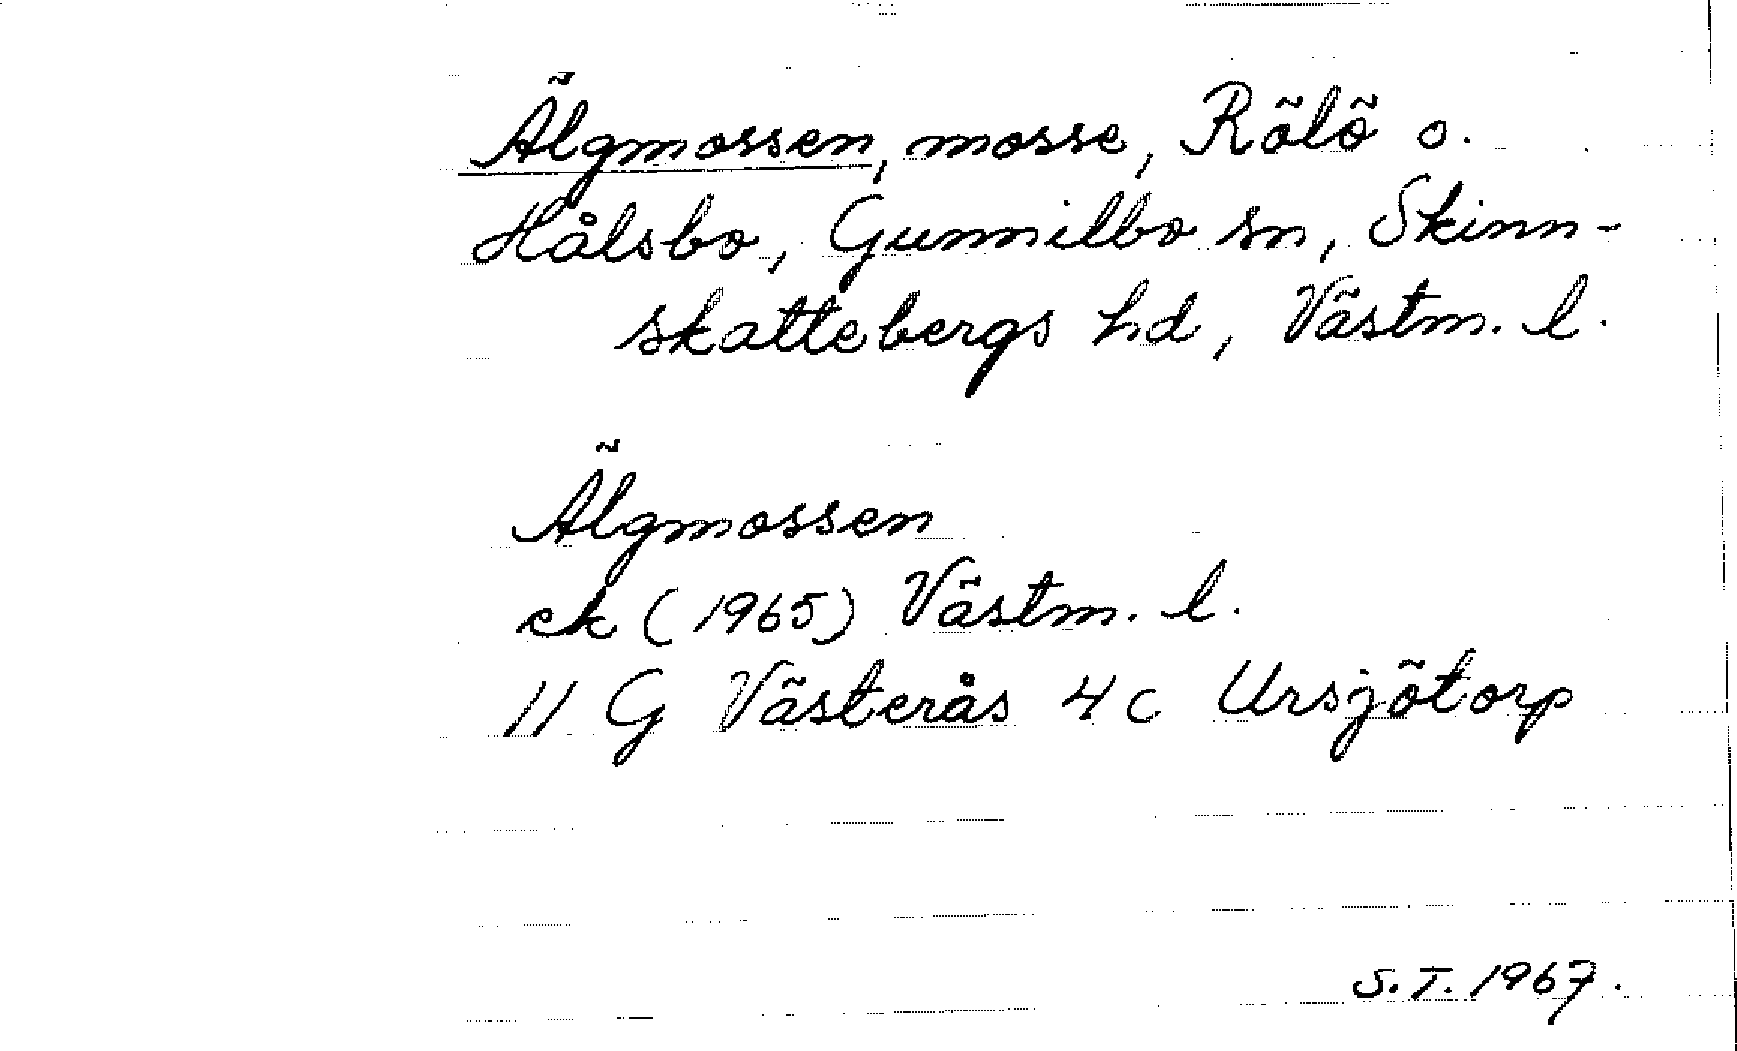 Älgmossen, mosse, Rölö o.
Hålsbo, Gunnilbo sn, Skinn-
skattebergs hd, Västm. l.
Älgmossen
ek (1965) Västm. l.
11 G Västerås 4c Ursjötorp
S.T. 1967.